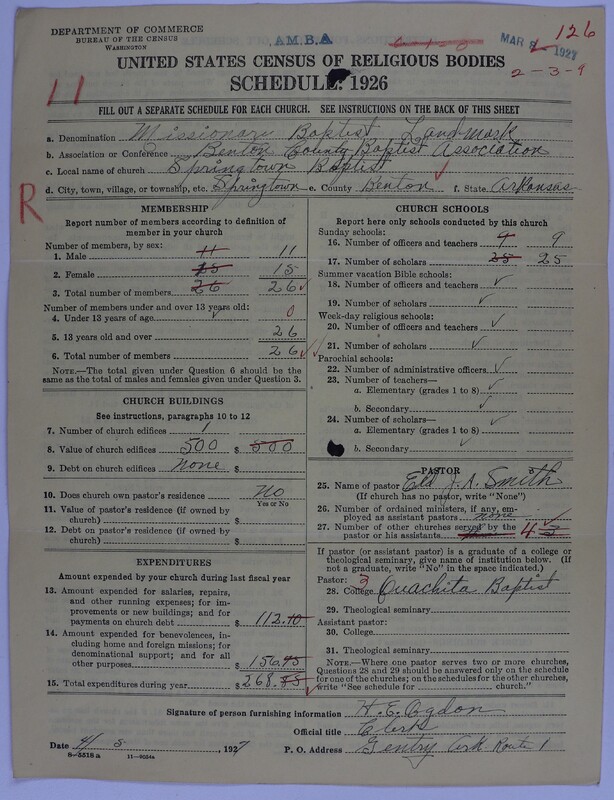 DEPARTMENT OF COMMERCE
BUREAU OF THE CENSUS
WASHINGTON
A.M.B.A
MAR 1927
126
2-3-9
UNITED STATES CENSUS OF RELIGIOUS BODIES
SCHEDULE: 1926
11
FILL OUT A SEPARATE SCHEDULE FOR EACH CHURCH. SEE INSTRUCTIONS ON THE BACK OF THIS SHEET
a. Denomination Missionary Baptist, Landmark
b. Association or Conference Benton County Baptist Association
c. Local name of church Springtown Baptist
d. City, town, village, or township, etc. Springtown e. County Benton f. State Arkansas
R
MEMBERSHIP
Report number of members according to definition of
member in your church
Number of members, by sex:
1. Male 11 11
2. Female 15 15
3. Total number of members 26 26
Number of members under and over 13 years old:
4. Under 13 years of age 0
5. 13 years old and over 26
6. Total number of members 26
NOTE.—The total given under Question 6 should be
the same as the total of males and females given under Question 3.
CHURCH BUILDINGS
See instructions, paragraphs 10 to 12
7. Number of church edifices 1
8. Value of church edifices 500 $ 500
9. Debt on church edifices None $
10. Does church own pastor's residence No
Yes or No
11. Value of pastor's residence (if owned by
church) $
12. Debt on pastor's residence (if owned by
church) $
EXPENDITURES
Amount expended by your church during last fiscal year
13. Amount expended for salaries, repairs,
and other running expenses; for im-
provements or new buildings; and for
payments on church debt $ 112.40
14. Amount expended for benevolences, in-
cluding home and foreign missions; for
denominational support; and for all
other purposes $ 156.45
15. Total expenditures during year $ 268.85
CHURCH SCHOOLS
Report here only schools conducted by this church
Sunday schools:
16. Number of officers and teachers 9 9
17. Number of scholars 25 25
Summer vacation Bible schools:
18. Number of officers and teachers
19. Number of scholars
Week-day religious schools:
20. Number of officers and teachers
21. Number of scholars
Parochial schools:
22. Number of administrative officers
23. Number of teachers—
a. Elementary (grades 1 to 8)
b. Secondary
24. Number of scholars—
a. Elementary (grades 1 to 8)
b. Secondary
PASTOR
25. Name of pastor Eld J. A. Smith
(If church has no pastor, write "None")
26. Number of ordained ministers, if any, em-
ployed as assistant pastors none
27. Number of other churches served by the
pastor or his assistants 4 3
If pastor (or assistant pastor) is a graduate of a college or
theological seminary, give name of institution below. (If
not a graduate, write "No" in the space indicated.)
Pastor: 3
28. College Ouachita Baptist
29. Theological seminary
Assistant pastor:
30. College
31. Theological seminary
NOTE.—Where one pastor serves two or more churches,
Questions 28 and 29 should be answered only on the schedule
for one of the churches; on the schedules for the other churches,
write "See schedule for church."
Signature of person furnishing information H. E. Ogdon
Official title Clerk
Date 4/8, 1927 P. O. Address Gentry Ark Route 1
8—5518 a 11—9054a